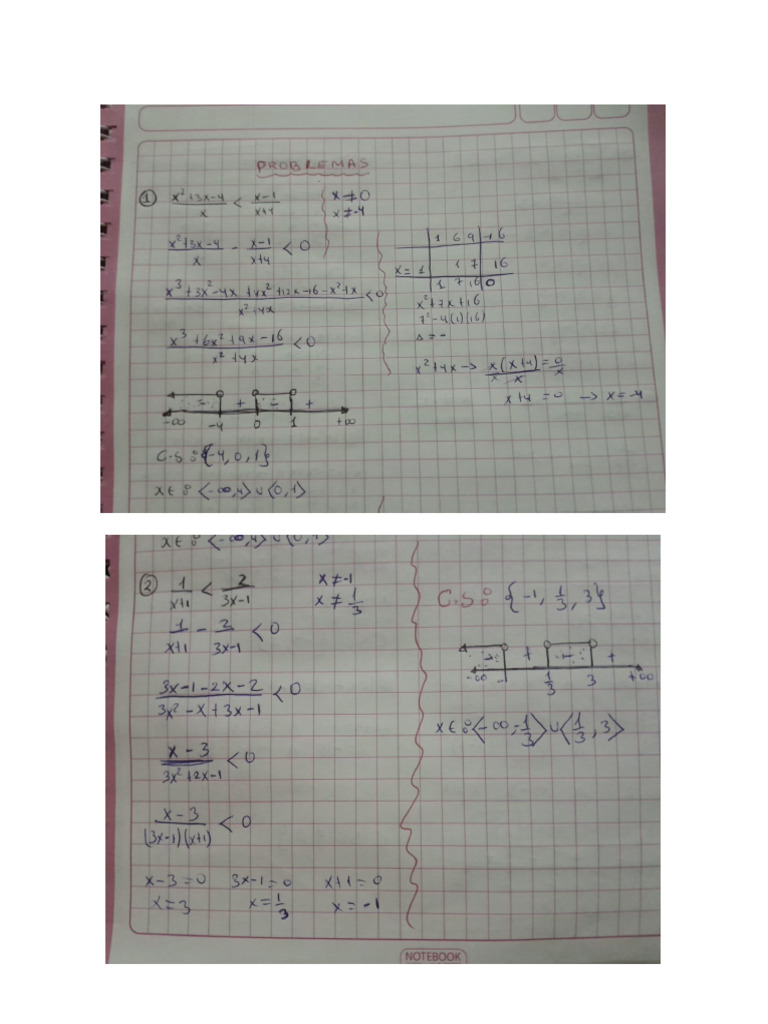 PROBLEMAS
① x²+3x-4/x < x-1/x+4 x≠0
x≠-4
x²+3x-4/x - x-1/x+4 < 0
x³+3x²-4x+4x²+12x-16-x²+x/x²+4x <0
x³+6x²+9x-16/x²+4x <0
-∞ -4 0 1 +∞
C.S: {-4, 0, 1}
x∈: <-∞,4> ∪ <0,1>
1 6 9 -16
x=1 1 7 16
1 7 16 0
x²+7x+16
7²-4(1)(16)
Δ=-
x²+4x → x(x+4)/x = 0/x
x+4 = 0 → x=-4
x∈: <-∞,4> ∪ <0,1>
② 1/x+1 < 2/3x-1 x≠-1
x≠1/3
1/x+1 - 2/3x-1 <0
3x-1-2x-2/3x²-x+3x-1 <0
x-3/3x²+2x-1 <0
x-3/(3x-1)(x+1) <0
x-3=0 3x-1=0 x+1=0
x=3 x=1/3 x=-1
C.S: {-1, 1/3, 3}
-∞ - 1/3 3 +∞
x∈: <-∞,-1/3> ∪ <1/3, 3>
NOTEBOOK